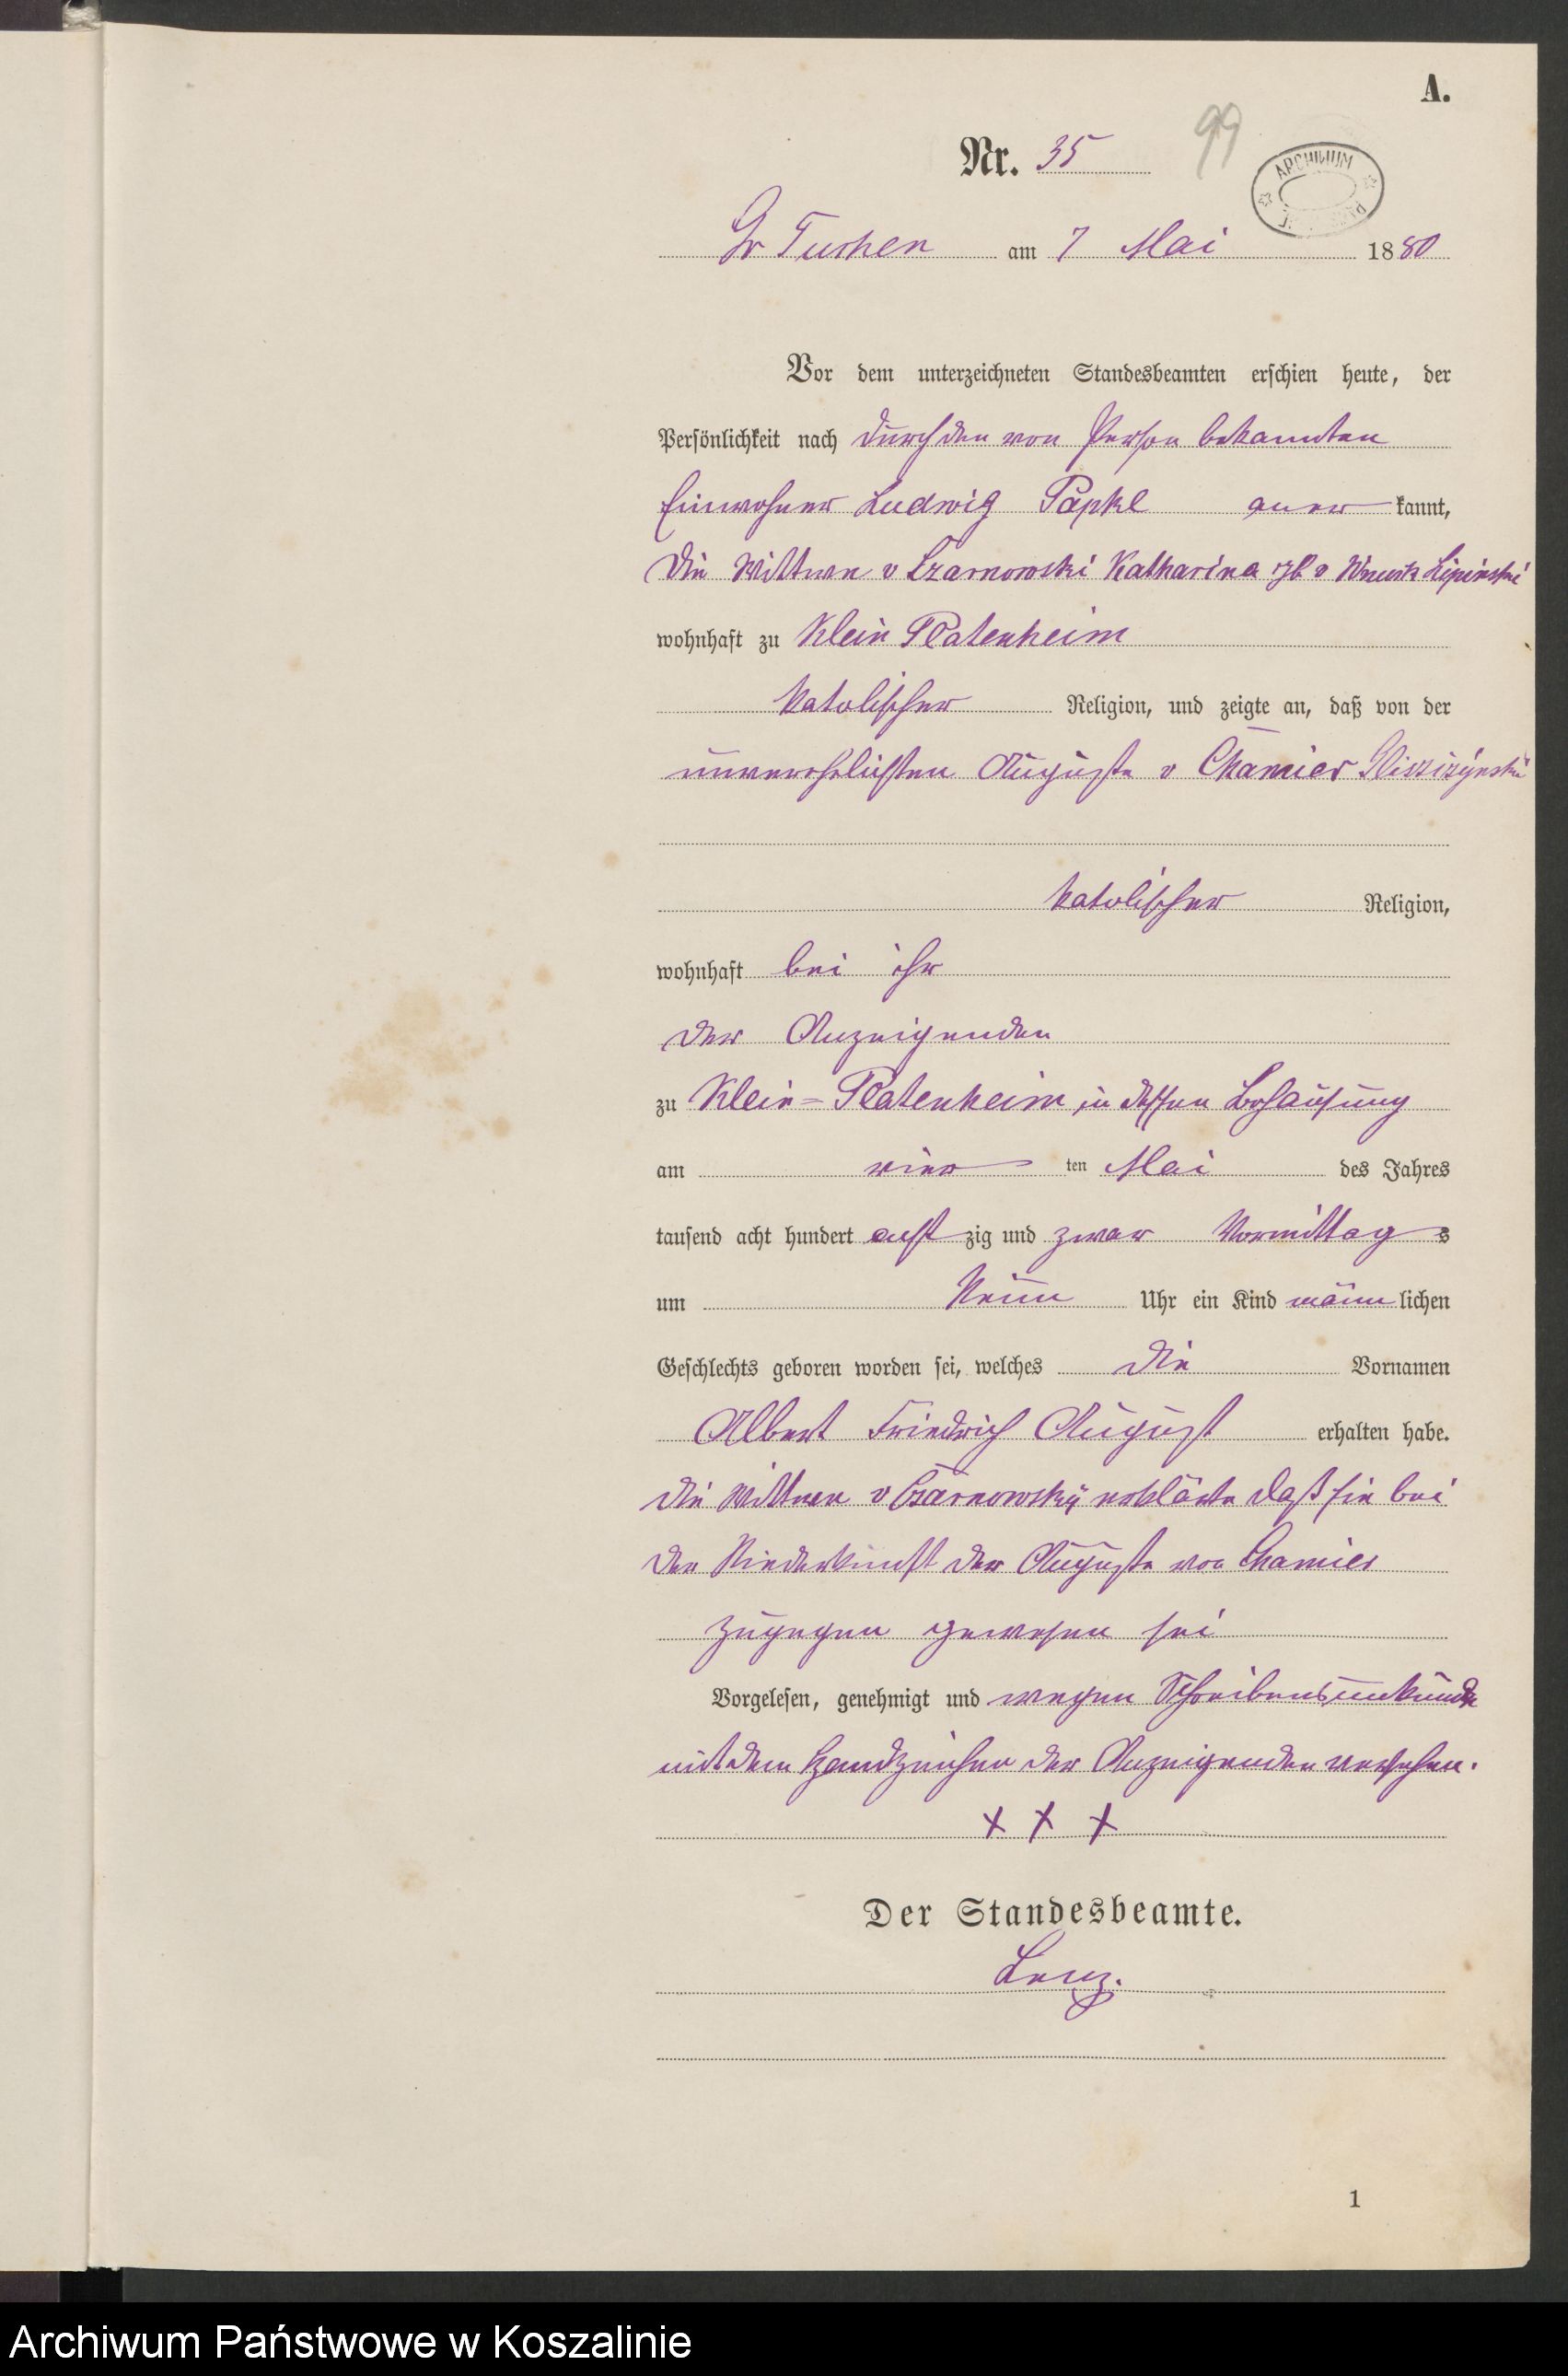 A.
Nr. 35
99
ARCHIWUM
Gr Tuchen am 7 Mai 1880
Vor dem unterzeichneten Standesbeamten erschien heute, der
Persönlichkeit nach durch den von Person bekannten
Einwohner Ludwig Papke aner kannt,
die Wittwe v Czarnowski Katharina gb v Wnuck Lipinski
wohnhaft zu Klein Platenheim
katolischer Religion, und zeigte an, daß von der
unverehelichten Auguste v Chamier Gliszizynski
katolischer Religion,
wohnhaft bei ihr
der Anzeigenden
zu Klein=Platenheim in dessen Behausung
am vier ten Mai des Jahres
tausend acht hundert acht zig und zwar Vormittag s
um Neun Uhr ein Kind männ lichen
Geschlechts geboren worden sei, welches die Vornamen
Albert Friedrich August erhalten habe.
die Wittwe v Czarnowsky erklärte daß sie bei
der Niederkunft der Auguste von Chamier
zugegen gewesen sei
Vorgelesen, genehmigt und wegen Schreibensunkunde
mit dem Handzeichen der Anzeigenden versehen.
+ + +
Der Standesbeamte.
Lenz.
1
Archiwum Państwowe w Koszalinie